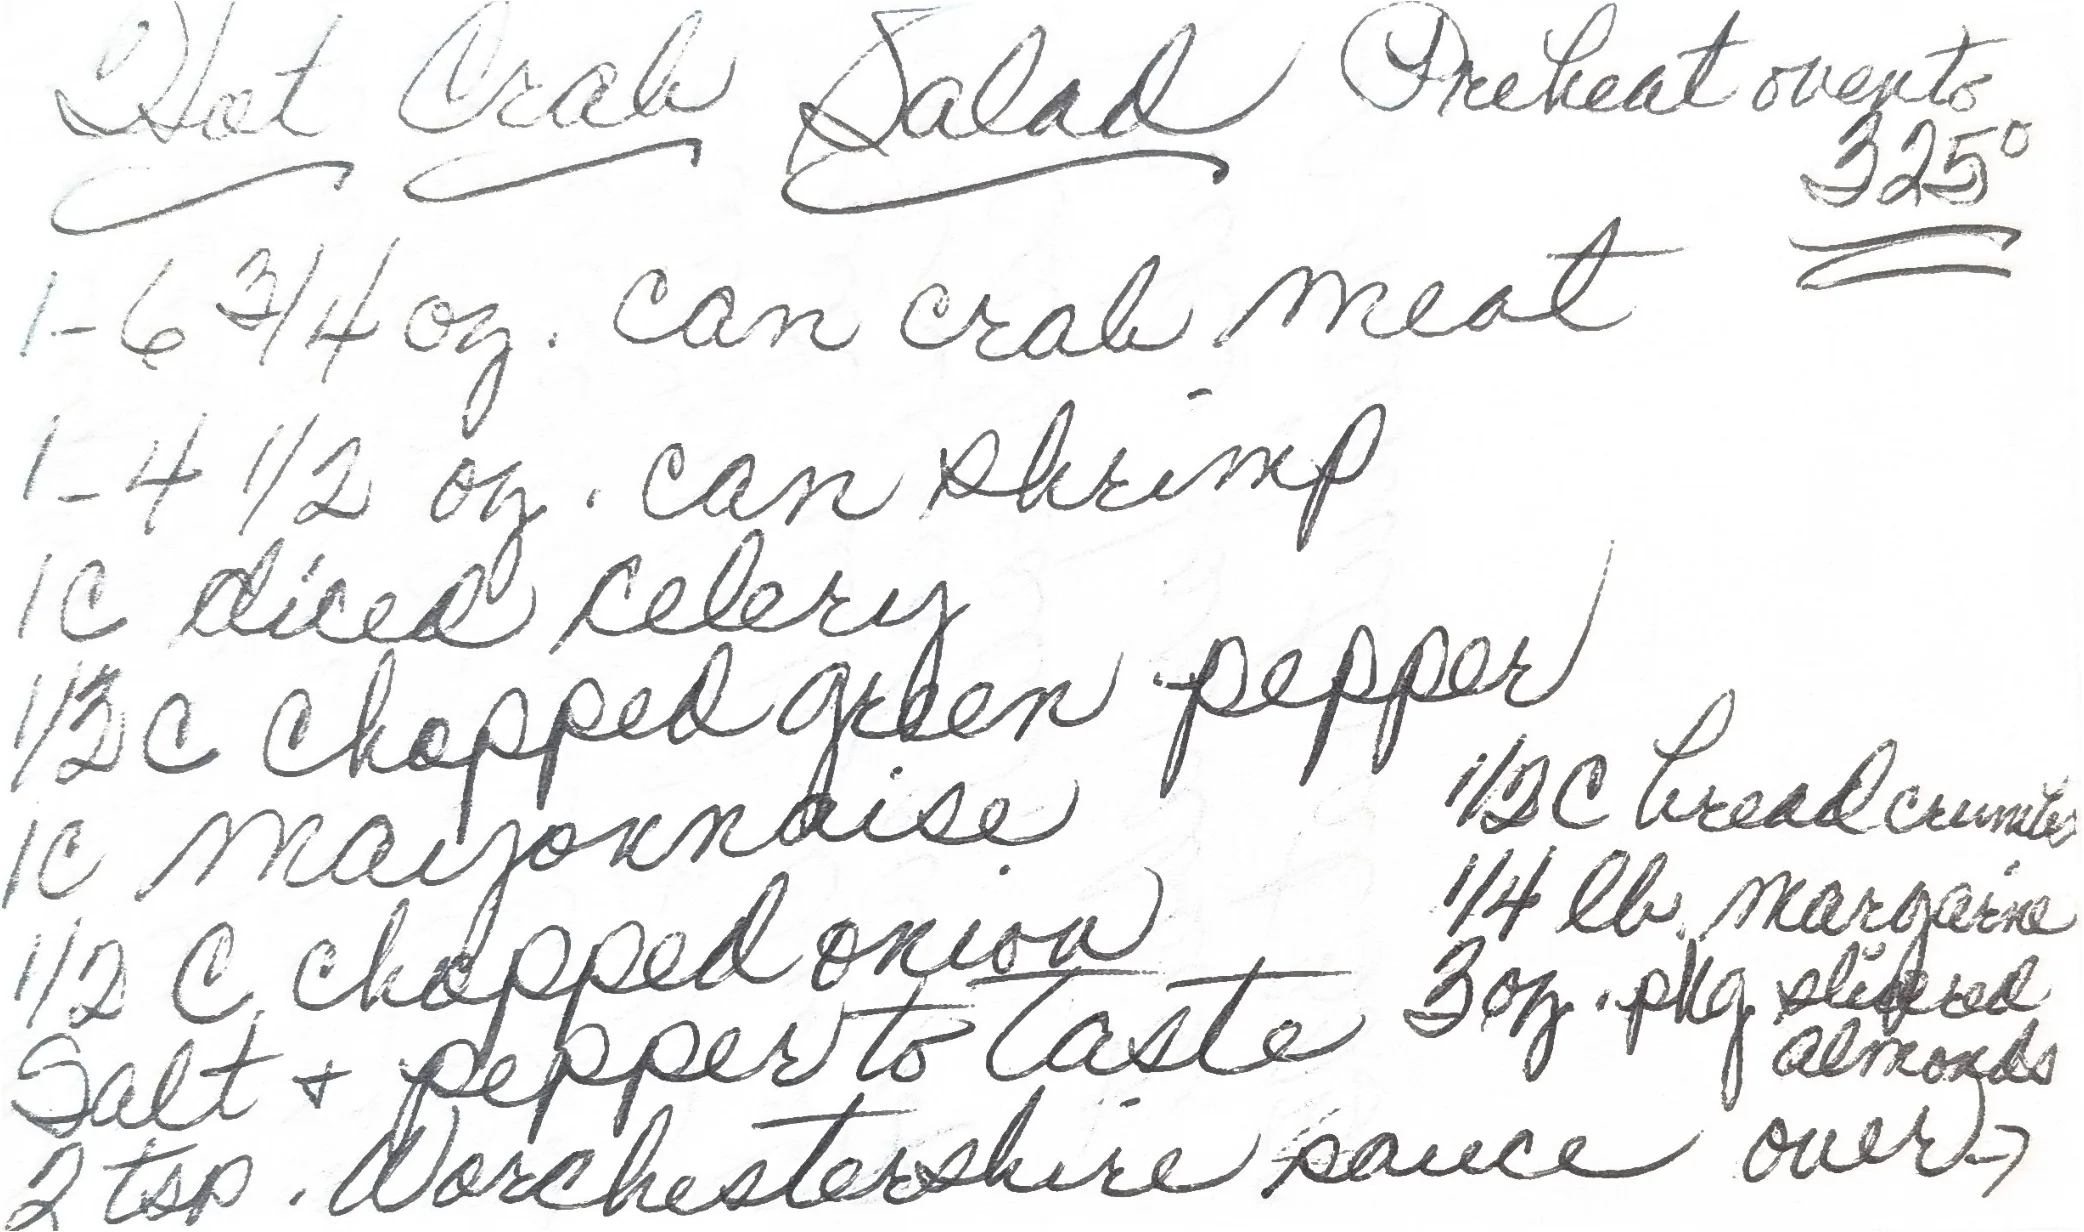 Hot Crab Salad Preheat oven to
325°
1-6 3/4 oz. can crab meat
1-4 1/2 oz. can shrimp
1c diced celery
c chopped green pepper
1c mayonnaise
1/2 C chopped onion
Salt + pepper to taste
2 tsp. Worchestershire sauce
C bread crumbs
1/4 lb. margaine
3 oz. pkg slivered
almonds
over →